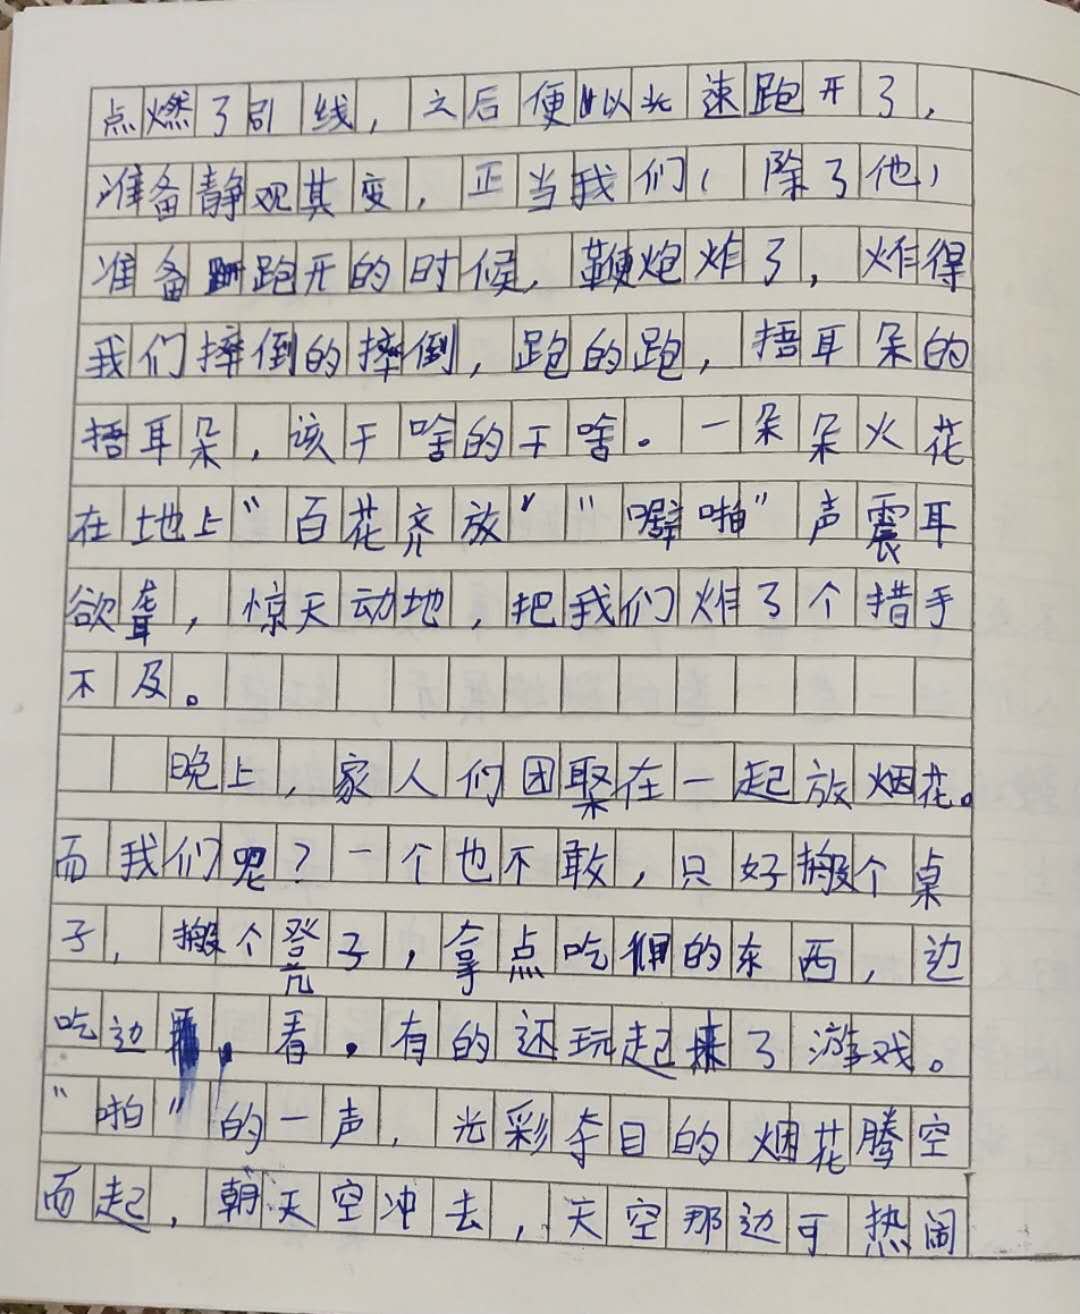 点燃了引线，之后便以此速跑开了，
准备静观其变，正当我们（除了他）
准备跑开的时候，鞭炮炸了，炸得
我们摔倒的摔倒，跑的跑，捂耳朵的
捂耳朵，该干啥的干啥。一朵朵火花
在地上“百花齐放”“噼啪”声震耳
欲聋，惊天动地，把我们炸了个措手
不及。
晚上，家人们团聚在一起放烟花。
而我们呢？一个也不敢，只好搬个桌
子，搬个凳子，拿点吃的东西，边
吃边看。有的还玩起来了游戏。
“啪”的一声，光彩夺目的烟花腾空
而起，朝天空冲去，天空那边可热闹